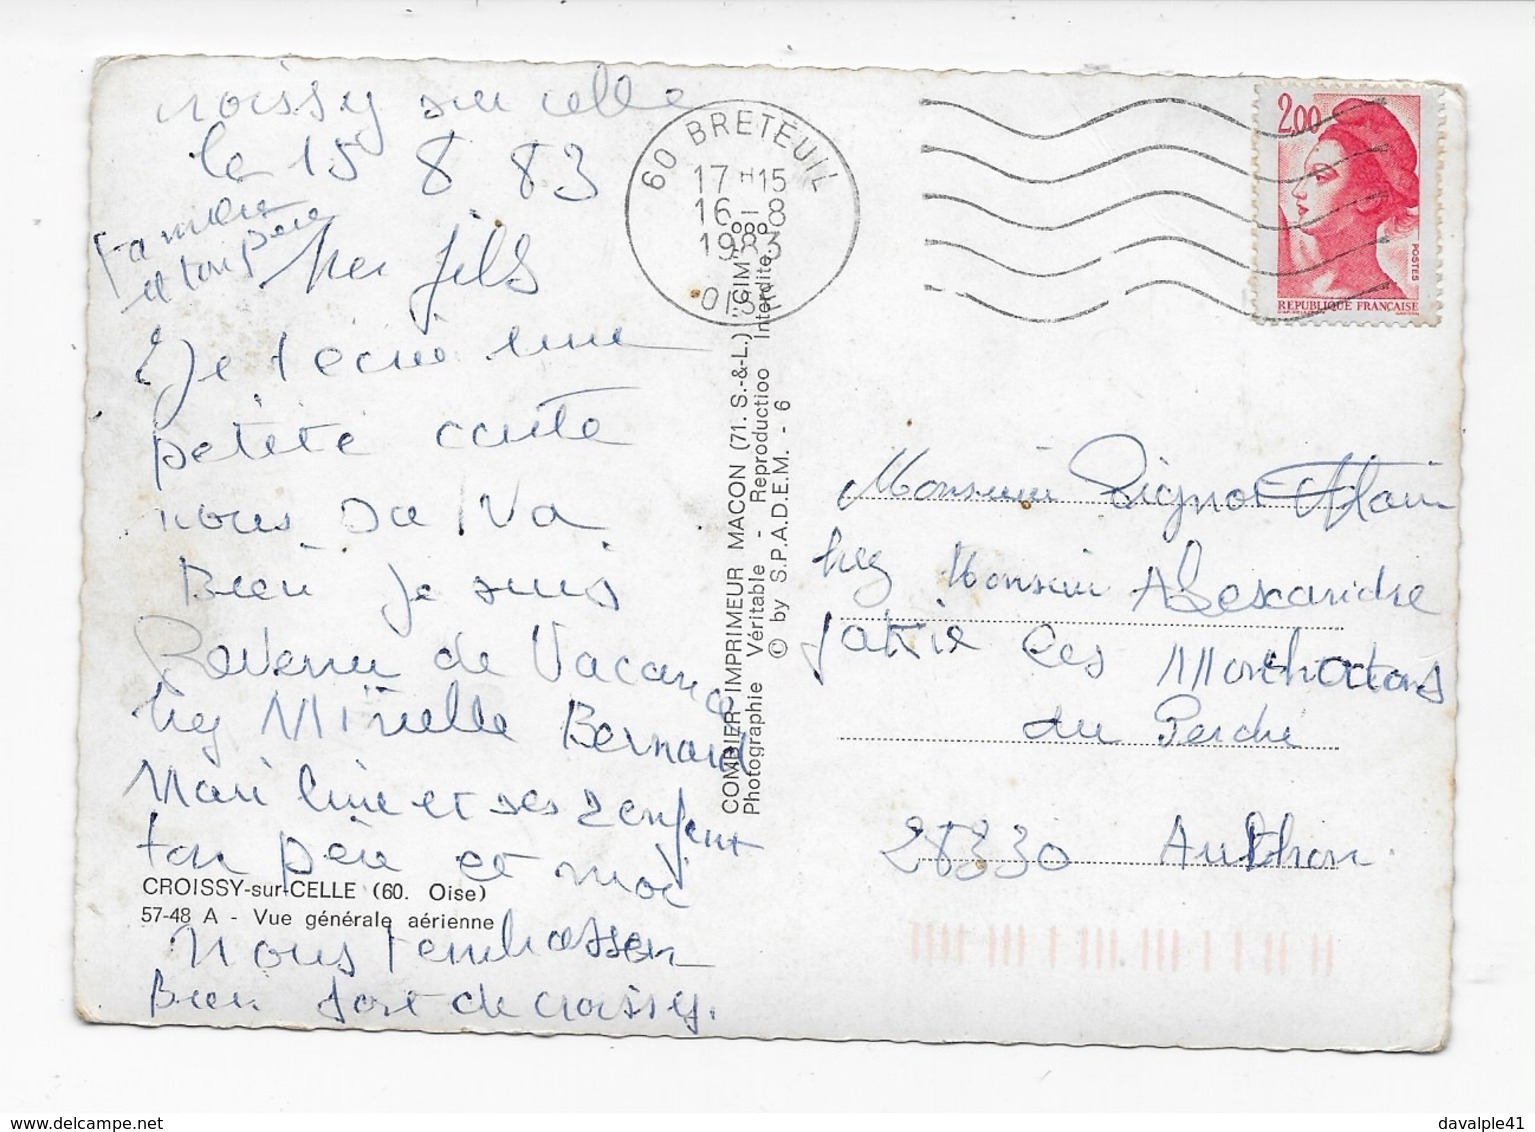 croissy sur celle
le 15 8 83
ta mère
et ton père
cher fils
Je t'ecrie une
petite carte
nous sa va
Bien je suis
Revenu de Vacance
chez Mireille Bernard
Mari line et ses 2 enfent
ton père et moi
CROISSY-sur-CELLE (60. Oise)
57-48 A - Vue générale aérienne
Nous t'embrassen
Bien fort de croissy.
COMBIER IMPRIMEUR MACON (71. S.-&-L.) "CIM"
Photographie Véritable - Reproductioo Interdite
© by S.P.A.D.E.M. - 6
60 BRETEUIL
17 H 15
16 - 8
1983
OISE
2,00
POSTES
REPUBLIQUE FRANÇAISE
Monsieur Alain
chez Monsieur
Les
du Perche
28330 Authon
davalple41